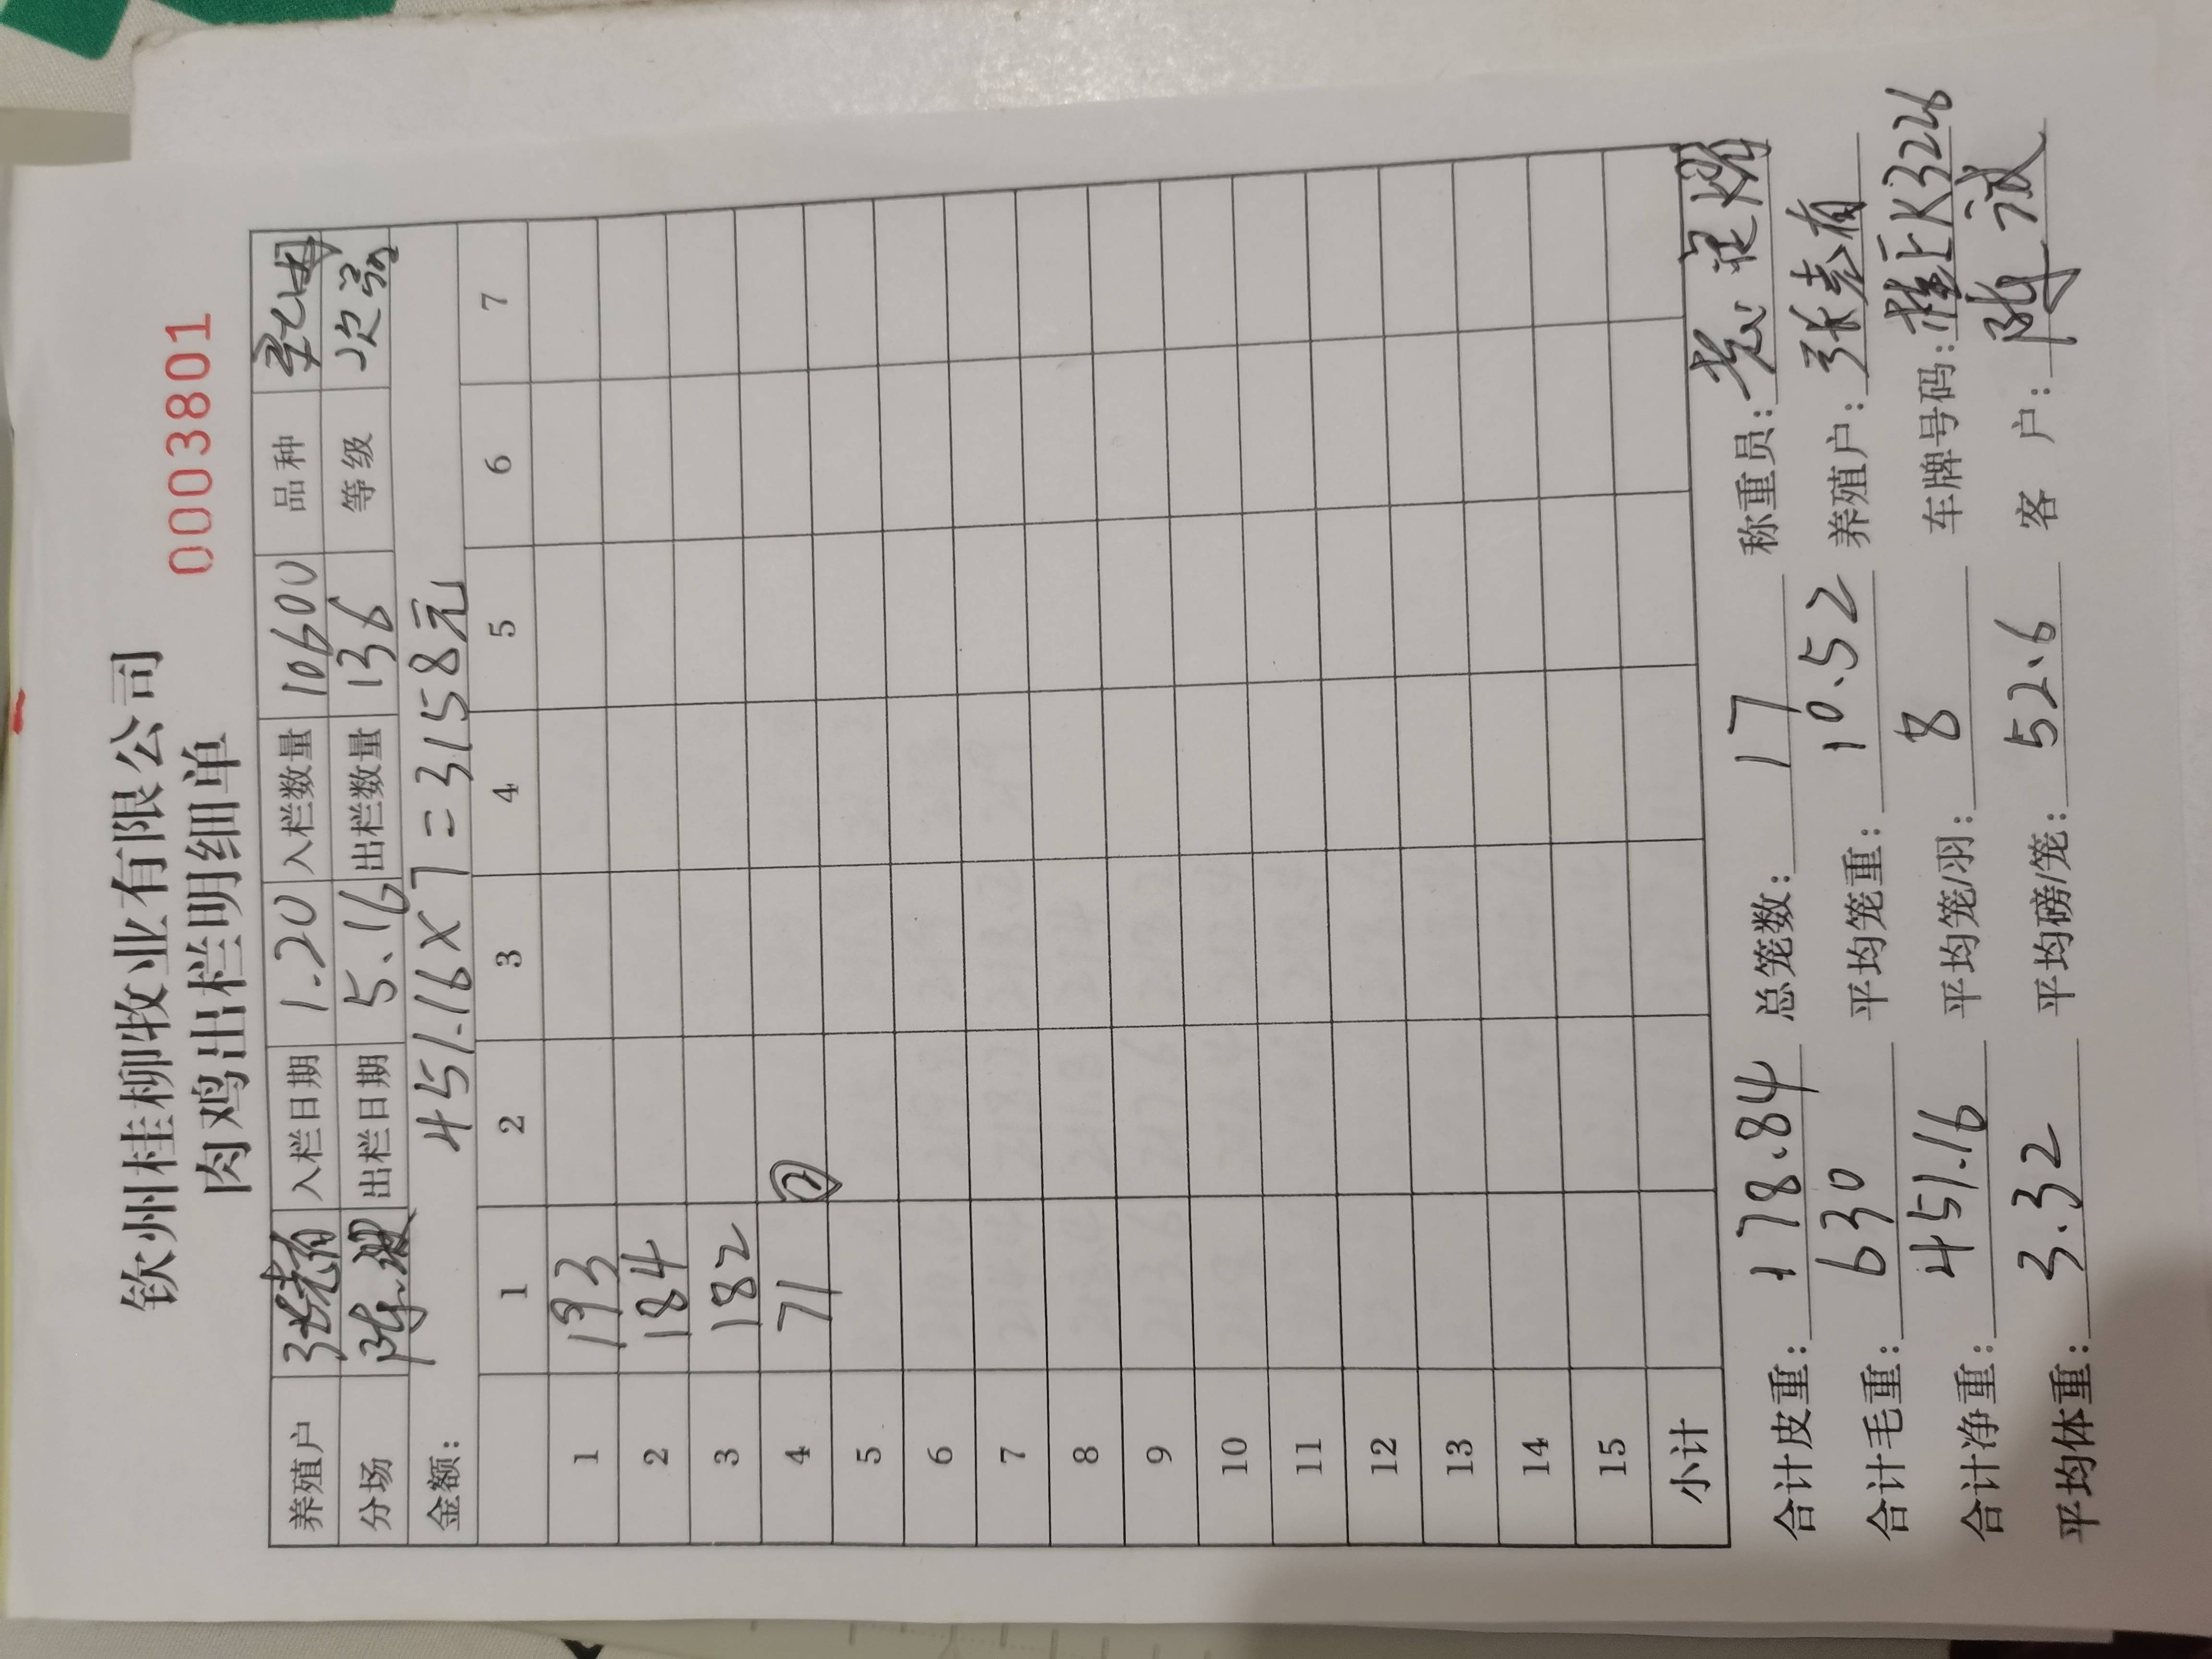 钦州桂柳牧业有限公司
肉鸡出栏明细单
0003801
养殖户 张秀有 入栏日期 1.20 入栏数量 10600 品种
分场 陈 出栏日期 5.16 出栏数量 136 等级 次鸡
金额: 451.16×7=3158元
1 2 3 4 5 6 7
1 193
2 184
3 182
4 71 ②
5
6
7
8
9
10
11
12
13
14
15
小计
合计皮重: 178.84 总笼数: 17 称重员:
合计毛重: 630 平均笼重: 10.52 养殖户: 张秀有
合计净重: 451.16 平均笼/羽: 8 车牌号码: 桂EK3226
平均体重: 3.32 平均磅/笼: 52.6 客 户: 陈